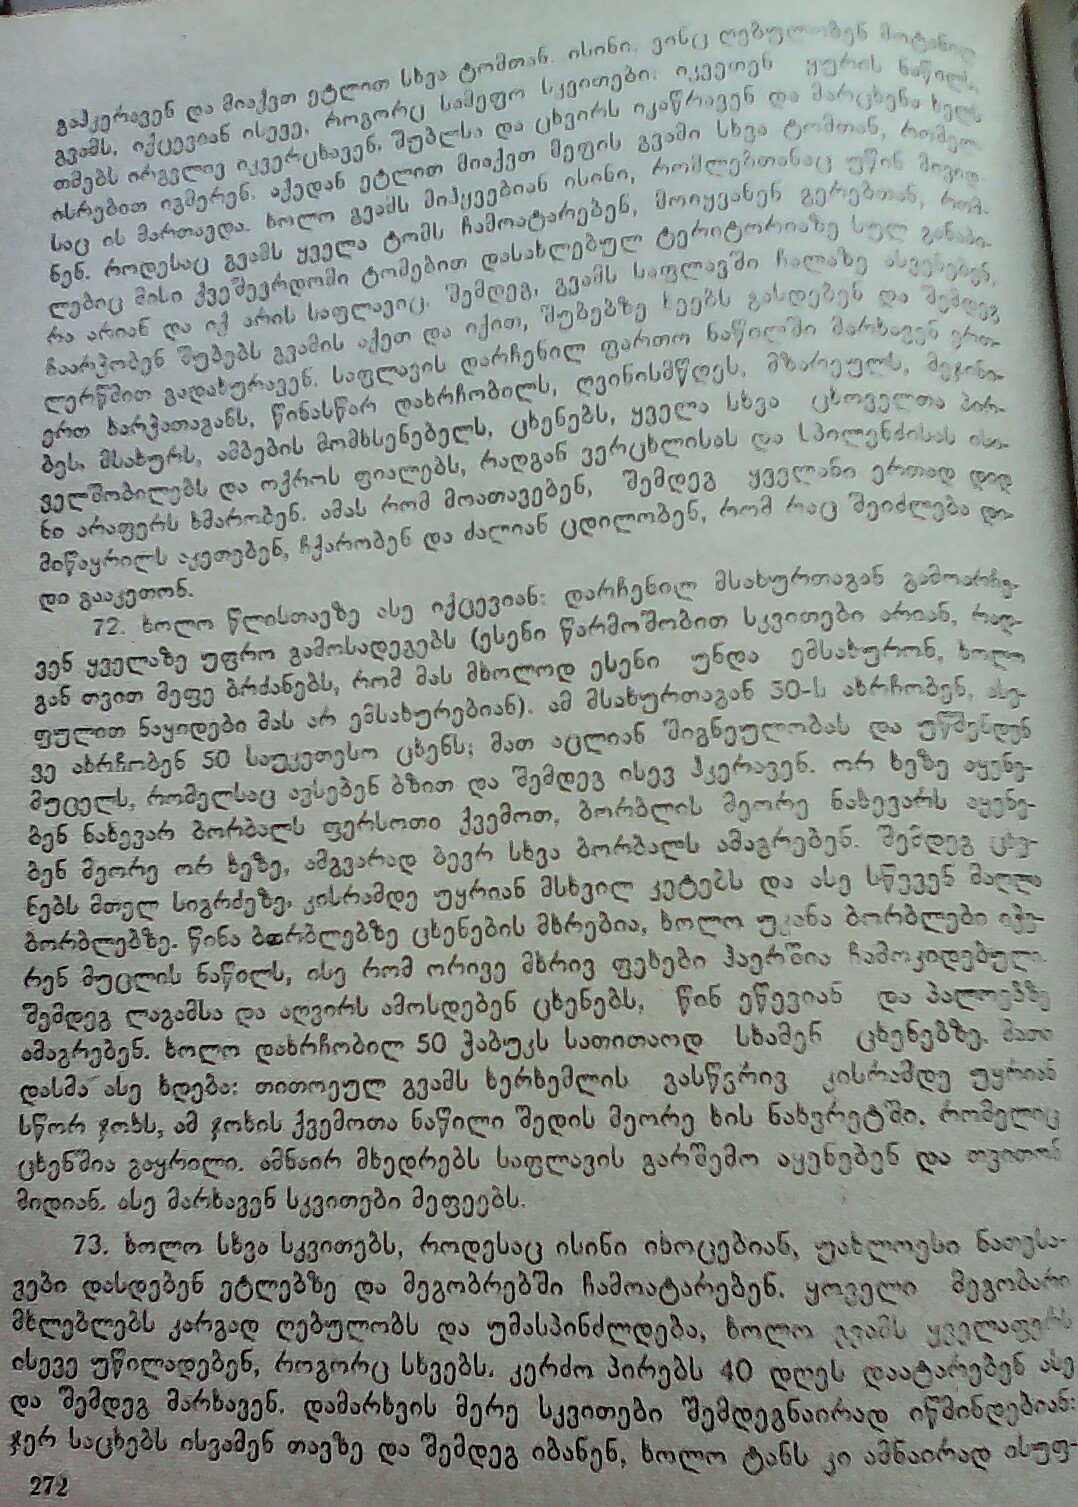 გაჰკერავენ და მიაქვთ ეტლით სხვა ტომთან. ისინი. ვინც ღებულობენ მოტანილ
გვამს, იქცევიან ისევე, როგორც სამეფო სკვითები: იკვეთენ ყურის ნაწილს,
თმებს ირგვლივ იკვერცხავენ, შუბლსა და ცხვირს იკაწრავენ და მარცხენა ხელს
ისრებით იგმერენ. აქედან ეტლით მიაქვთ მეფის გვამი სხვა ტომთან, რომელ-
საც ის მართავდა. ხოლო გვამს მიჰყვებიან ისინი, რომლებთანაც უწინ მივიდ-
ნენ. როდესაც გვამს ყველა ტომს ჩამოატარებენ, მოიყვანენ გერებთან, რომ-
ლებიც მისი ქვეშევრდომი ტომებით დასახლებულ ტერიტორიაზე სულ განაპი-
რა არიან და იქ არის საფლავიც. შემდეგ, გვამს საფლავში ჩალაზე ასვენებენ,
ჩაარჭობენ შუბებს გვამის აქეთ და იქით, შუბებზე ხეებს გასდებენ და შემდეგ
ლერწმით გადახურავენ. საფლავის დარჩენილ ფართო ნაწილში მარხავენ ერთ-
ერთ ხარჭათაგანს, წინასწარ დახრჩობილს, ღვინისმწდეს, მზარეულს, მეჯინი-
ბეს, მსახურს, ამბების მომხსენებელს, ცხენებს, ყველა სხვა ცხოველთა პირ-
ველშობილებს და ოქროს ფიალებს, რადგან ვერცხლისას და სპილენძისას ისი-
ნი არაფერს ხმარობენ. ამას რომ მოათავებენ, შემდეგ ყველანი ერთად დიდ
მიწაყრილს აკეთებენ, ჩქარობენ და ძალიან ცდილობენ, რომ რაც შეიძლება დი-
დი გააკეთონ.
72. ხოლო წლისთავზე ასე იქცევიან: დარჩენილ მსახურთაგან გამოარჩე-
ვენ ყველაზე უფრო გამოსადეგებს (ესენი წარმოშობით სკვითები არიან, რად-
გან თვით მეფე ბრძანებს, რომ მას მხოლოდ ესენი უნდა ემსახურონ, ხოლო
ფულით ნაყიდები მას არ ემსახურებიან). ამ მსახურთაგან 50-ს ახრჩობენ, ასე-
ვე ახრჩობენ 50 საუკეთესო ცხენს; მათ აცლიან შიგნეულობას და უწმენდენ
მუცელს, რომელსაც ავსებენ ბზით და შემდეგ ისევ ჰკერავენ. ორ ხეზე აყენე-
ბენ ნახევარ ბორბალს ფერსოთი ქვემოთ, ბორბლის მეორე ნახევარს აყენე-
ბენ მეორე ორ ხეზე, ამგვარად ბევრ სხვა ბორბალს ამაგრებენ. შემდეგ ცხე-
ნებს მთელ სიგრძეზე, კისრამდე უყრიან მსხვილ კეტებს და ასე სწევენ მაღლა
ბორბლებზე. წინა ბორბლებზე ცხენების მხრებია, ხოლო უკანა ბორბლები იჭე-
რენ მუცლის ნაწილს, ისე რომ ორივე მხრივ ფეხები ჰაერშია ჩამოკიდებული.
შემდეგ ლაგამსა და აღვირს ამოსდებენ ცხენებს, წინ ეწევიან და პალოებზე
ამაგრებენ. ხოლო დახრჩობილ 50 ჭაბუკს სათითაოდ სხამენ ცხენებზე. მათი
დასმა ასე ხდება: თითოეულ გვამს ხერხემლის გასწვრივ კისრამდე უყრიან
სწორ ჯოხს, ამ ჯოხის ქვემოთა ნაწილი შედის მეორე ხის ნახვრეტში, რომელიც
ცხენშია გაყრილი. ამნაირ მხედრებს საფლავის გარშემო აყენებენ და თვითონ
მიდიან. ასე მარხავენ სკვითები მეფეებს.
73. ხოლო სხვა სკვითებს, როდესაც ისინი იხოცებიან, უახლოესი ნათესა-
ვები დასდებენ ეტლებზე და მეგობრებში ჩამოატარებენ. ყოველი მეგობარი
მხლებლებს კარგად ღებულობს და უმასპინძლდება, ხოლო გვამს ყველაფერს
ისევე უწილადებენ, როგორც სხვებს. კერძო პირებს 40 დღეს დაატარებენ ასე
და შემდეგ მარხავენ. დამარხვის მერე სკვითები შემდეგნაირად იწმინდებიან:
ჯერ საცხებს ისვამენ თავზე და შემდეგ იბანენ, ხოლო ტანს კი ამნაირად ისუფ-
272